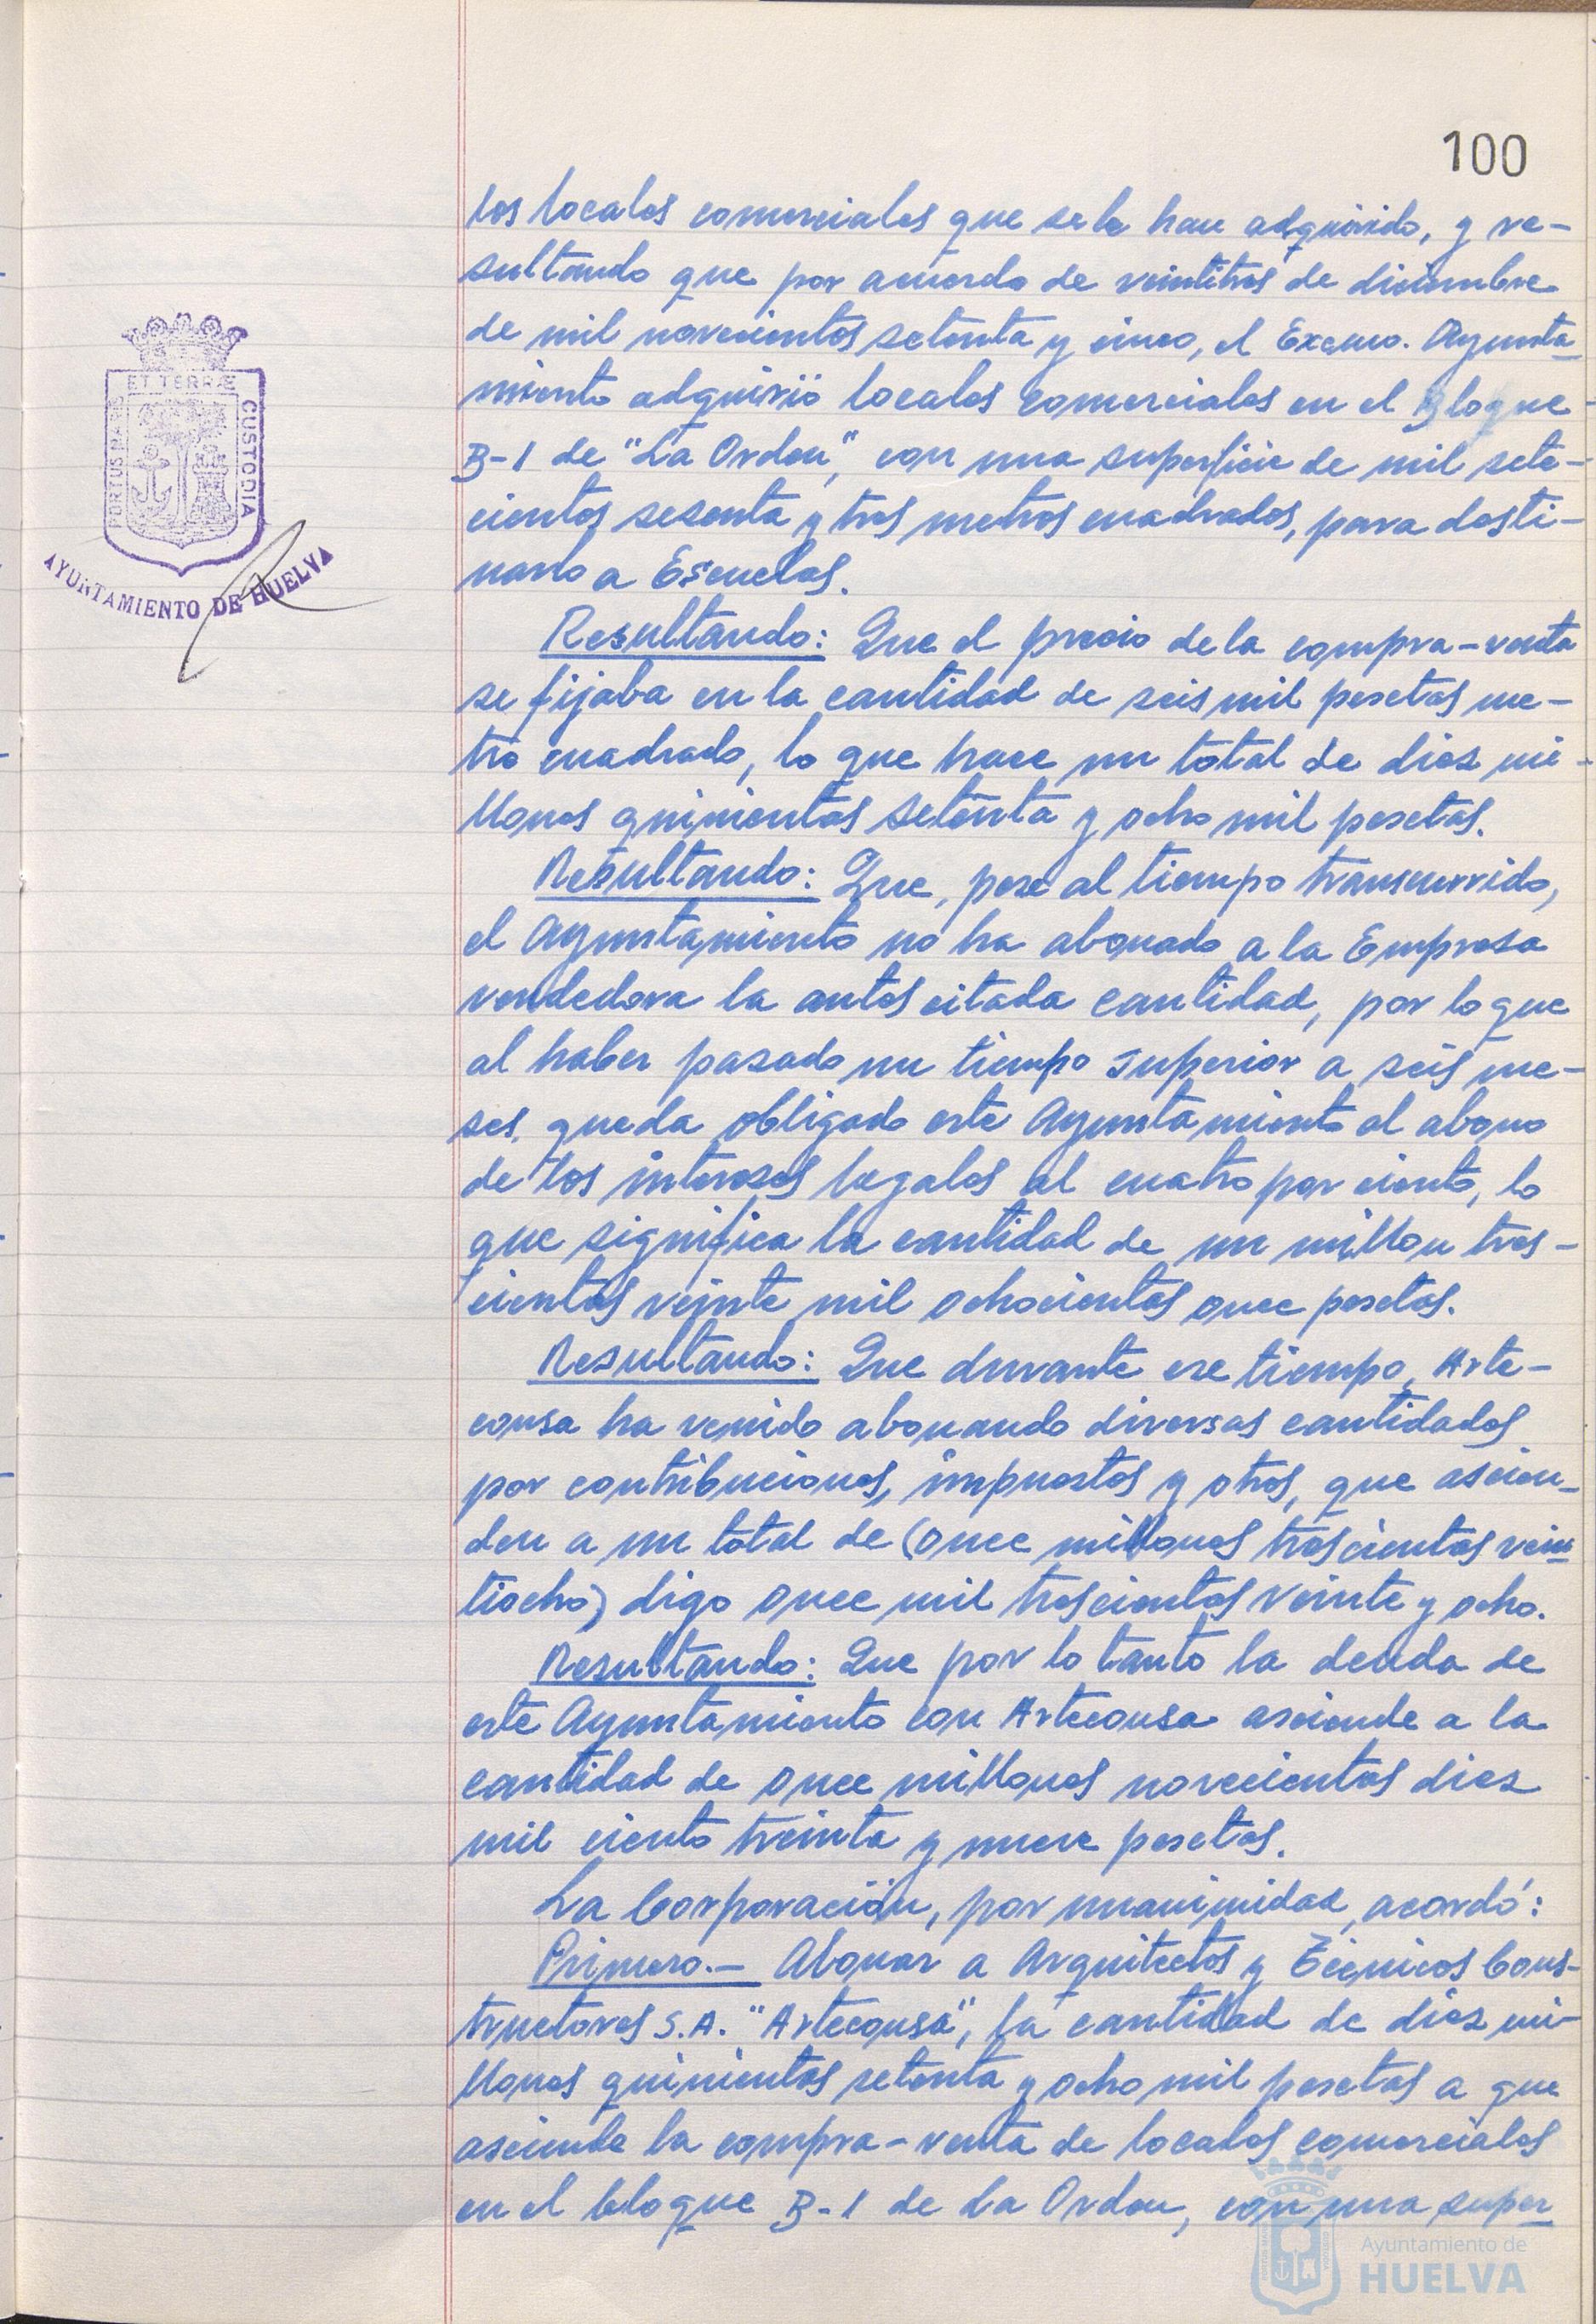 100
los locales comerciales que se le han adquirido, y re-
sultando que por acuerdo de veintitres de diciembre
de mil novecientos setenta y cinco, el Excmo. Ayunta-
miento adquirió locales comerciales en el Bloque
B-1 de "La Orden", con una superficie de mil sete-
cientos sesenta y tres metros cuadrados, para desti-
narlo a Escuelas.
Resultando: Que el precio de la compra-venta
se fijaba en la cantidad de seis mil pesetas me-
tro cuadrado, lo que hace un total de diez mi-
llones quinientas setenta y ocho mil pesetas.
Resultando: Que, pese al tiempo transcurrido,
el Ayuntamiento no ha abonado a la Empresa
vendedora la antes citada cantidad, por lo que
al haber pasado un tiempo superior a seis me-
ses, queda obligado este Ayuntamiento al abono
de los intereses legales al cuatro por ciento, lo
que significa la cantidad de un millon tres-
cientas veinte mil ochocientas once pesetas.
Resultando: Que durante ese tiempo, Arte-
consa ha venido abonando diversas cantidades
por contribuciones, impuestos y otros, que ascien-
den a un total de (once millones trescientas vein
tiocho) digo once mil trescientas veinte y ocho.
Resultando: Que por lo tanto la deuda de
este Ayuntamiento con Arteconsa asciende a la
cantidad de once millones novecientas diez
mil ciento treinta y nueve pesetas.
La Corporación, por unanimidad, acordó:
Primero.- Abonar a Arquitectos y Técnicos Cons-
tructores S.A. "Arteconsa", la cantidad de diez mi-
llones quinientas setenta y ocho mil pesetas a que
asciende la compra-venta de locales comerciales
en el bloque B-1 de La Orden, con una super
ET TERRÆ
PORTUS MARIS
CUSTODIA
AYUNTAMIENTO DE HUELVA
Ayuntamiento de
HUELVA